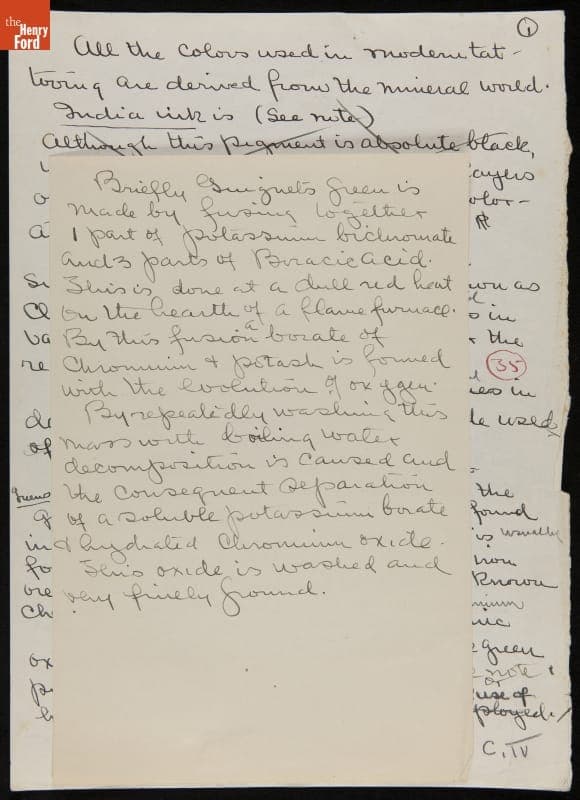 the
Henry
Ford
1
All the colors used in modern tat-
tooing are derived from the mineral world.
India ink is (See note)
Although this pigment is absolute black,
ayers
olor-
Briefly Guignets Green is
made by fusing together
1 part of potassium bichromate
and 3 parts of Boracic Acid.
This is done at a dull red heat
on the hearth of a flame furnace.
By this fusion a borate of
Chromium & potash is formed
with the evolution of oxygen.
By repeatedly washing this
mass with boiling water
decomposition is caused and
the consequent separation
of a soluble potassium borate
& hydrated Chromium oxide.
This oxide is washed and
very finely ground.
own as
s in
the
35
ies in
le used
of
Greens
the
found
in
is usually
fo
non
ore
Known
Ch
mium
nic
ox
green
note
or
use of
ployed.
C. IV